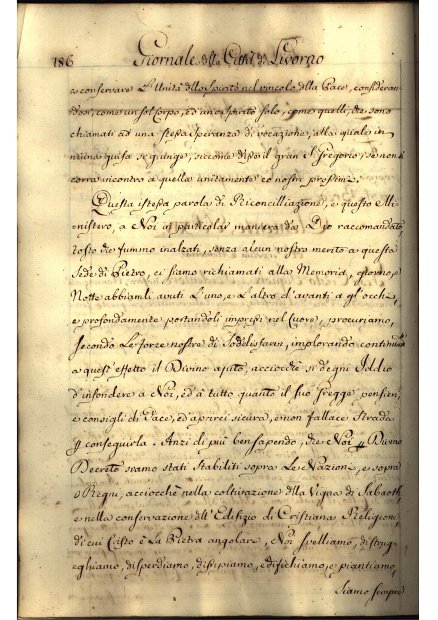 186 Giornale della Città di Livorno
a conservare l'Unità dello Spirito nel vincolo della Pace, consideran
doci, come un sol corpo, ed uno spirito solo, come quelli, che sono
chiamati ad una stessa speranza di vocazione, alla quale in
niuna guisa si giunge, siccome disse il gran S. Gregorio, se non si
corra incontro a quella unitamente co nostri prossimi.
Questa istessa parola di Riconciliazione, e questo Mi-
nistero, a Noi in particolar maniera da Dio raccomandato
tosto che fummo inalzati, senza alcun nostro merito a questa
Sede di Pietro, ci siamo richiamati alla Memoria, e giorno, e
Notte abbiamli avuti l'uno, e l'altro d'avanti a gl'occhi,
e profondamente portandoli impressi nel Cuore, procuriamo,
secondo le forze nostre di soddisfarvi, implorando continuam.te
a quest'effetto il Divino ajuto, acciocchè si degni Iddio
d'infondere a Noi, ed à tutto quanto il suo Gregge pensieri,
e consigli di Pace, ed aprirci sicura, e non fallace Strada
p conseguirla. Anzi di più ben sapendo, che Noi p Divino
Decreto siamo stati stabiliti sopra le Nazioni, e sopra
i Regni, acciocchè nella coltivazione della Vigna di Sabaoth,
e nella conservazione dell'Edifizio di Cristiana Religione,
di cui Cristo è la Pietra angolare, Noi svelliamo, distrug-
ghiamo, disperdiamo, dissipiamo, edifichiamo, e piantiamo,
siamo sempre